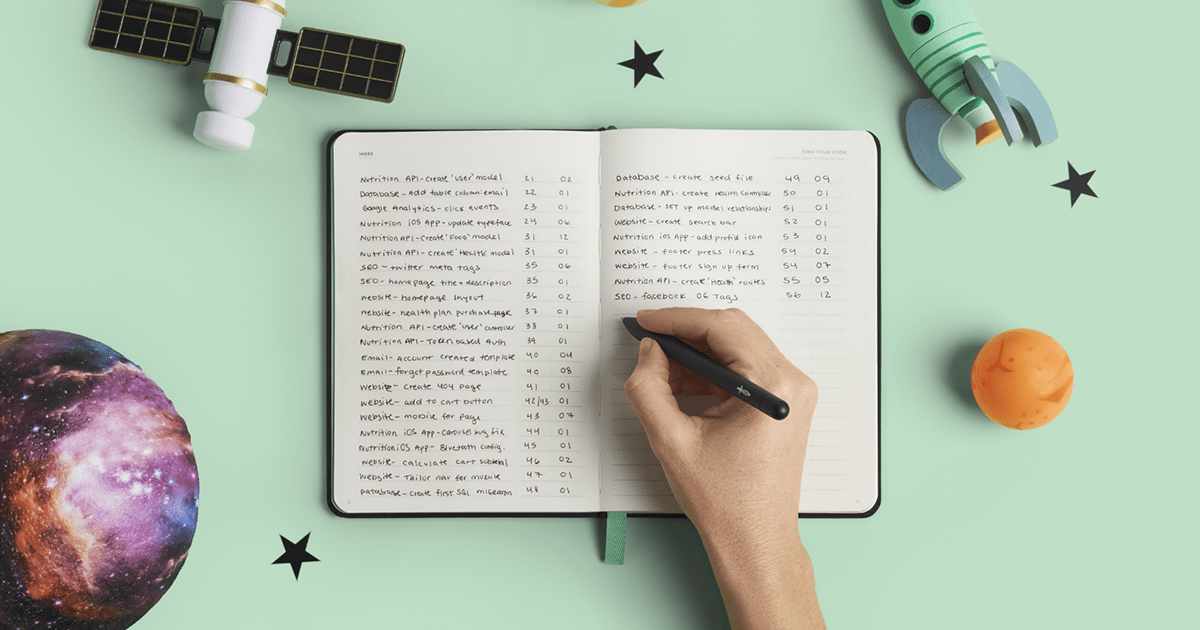 INDEX
Nutrition API-create 'user' model 21 02
Database - Add table column:email 22 01
Google Analytics - click events 23 01
Nutrition iOS App - update typeface 24 06
Nutrition API-create 'Food' model 31 12
Nutrition API-create 'Health' model 31 01
SEO - twitter meta tags 35 06
SEO - homepage title + description 35 01
Website - homepage layout 36 02
Website - health plan purchase page 37 01
Nutrition API-create 'user' controller 38 01
Nutrition API-Token based Auth 39 01
Email - Account created template 40 04
Email - forgot password template 40 08
Website - create 404 page 41 01
Website - add to cart button 42/43 01
Website - mobile for page 43 07
Nutrition iOS App-carousel bug fix 44 01
Nutrition iOS App - Bluetooth config. 45 01
Website - calculate cart subtotal 46 02
Website - Tailor nav for mobile 47 01
Database - create first SQL migration 48 01
FIND YOUR CODE.
Database - create seed file 49 09
Nutrition API-create Health controller 50 01
Database - SET up model relationships 51 01
Website - create search bar 52 01
Nutrition iOS App - add profile icon 53 01
Website - footer press links 54 02
Website - footer sign up form 54 07
Nutrition API - create 'Health' routes 55 05
SEO - facebook OG Tags 56 12